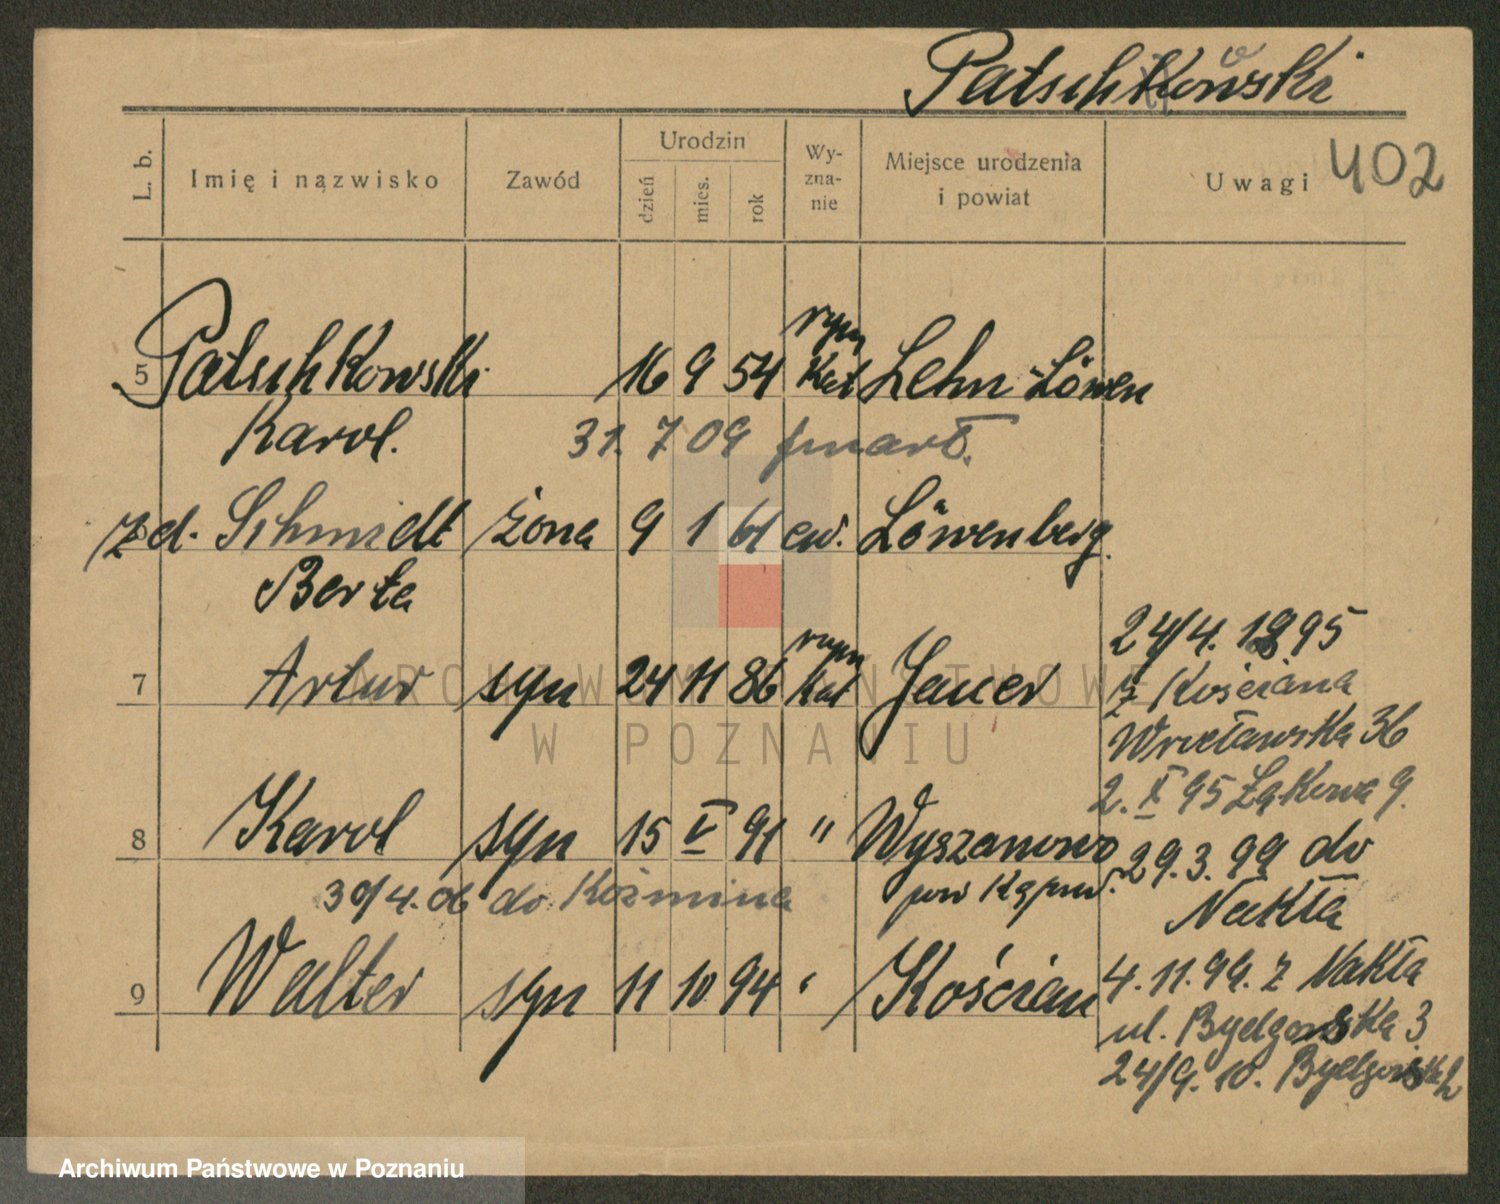 Patschkowski
L. b.
Imię i nazwisko
Zawód
Urodzin
dzień
mies.
rok
Wy-
zna-
nie
Miejsce urodzenia
i powiat
Uwagi
402
5 Patschkowski 16 9 54 rzym Kat Lehn - Löwen
Karol. 31. 7 09 zmarł.
z d. Schmidt żona 9 1 61 ew. Löwenberg
Berta
7 Artur syn 24 11 86 rzym Kat Jauer
24/4. 1895
z Kościana
Wrocławska 36
2. X 95 Łąkowa 9.
8 Karol syn 15 V 91 " Wyszanowo
pow Kępno.
30/4. 06 do Koźmina
29. 3. 99 do
Nakła
9 Walter syn 11 10 94 " Kościan
4. 11. 99. z Nakła
ul. Bydgoska 3
24/9. 10. Bydgoska 2
ARCHIWUM PAŃSTWOWE
W POZNANIU
Archiwum Państwowe w Poznaniu